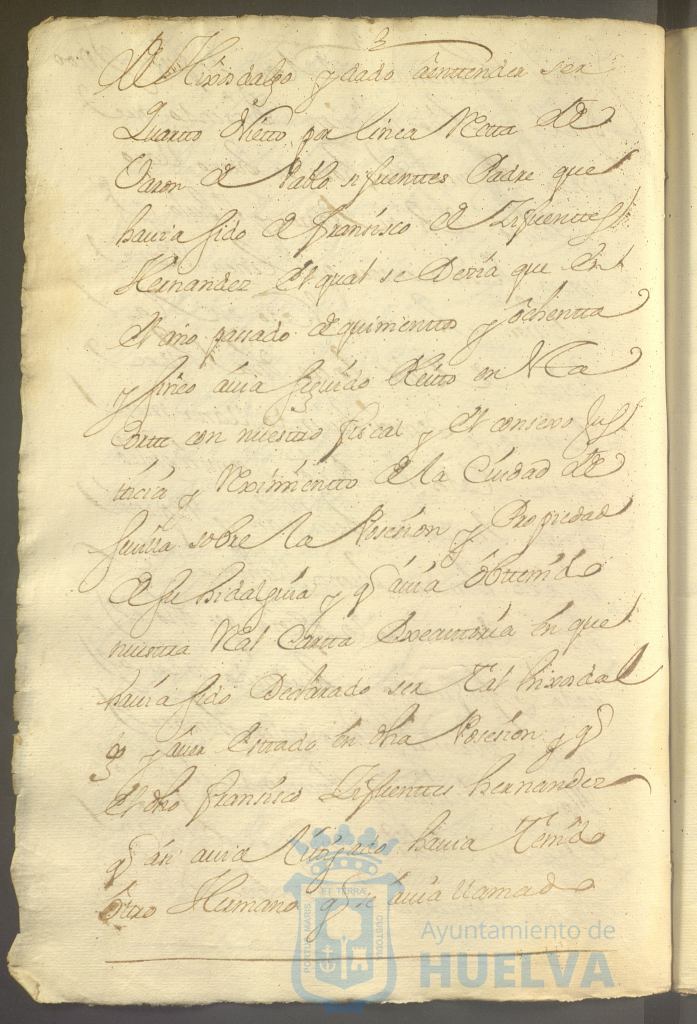 3
de Hixodalgo y dado aenttender ser
Quartto Nietto por linea Recta de
Varon de Pablo sifuenttes Padre que
havia sido de fransisco de Zifuenttes
Hernandez el qual se Dezia que en
el año passado de quinienttos y ochentta
y sinco avia seguido Pleito en Nra
Corte con nuestro fiscal y el consexo Jus
ticia y Reximientto de la Ciudad de
sevilla sobre la Posesion y Propiedad
de su hidalguia y q avia obttenido
nuestra Real Cartta Executtoria en que
havia sido Declarado ser tal hixodal
go y aver Estado en dha Posesion y q
el dho fransisco Zifuenttes hernandez
q asi avia Litigado havia tenido
ottro Hermano q se avia llamado
PORTUS MARIS ET TERRAE CUSTODIA
Ayuntamiento de
HUELVA